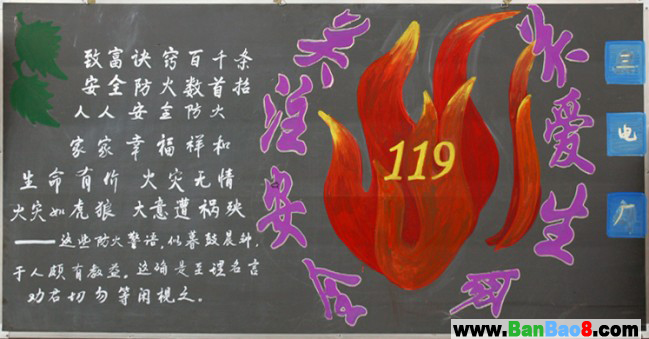 致富诀窍百千条
安全防火数首招
人人安全防火
家家幸福祥和
生命有价 火灾无情
火灾如虎狼 大意遭祸殃
——这些防火警语，似暮鼓晨钟，
于人颇有教益。这确是至理名言
劝君切勿等闲视之。
关注安全
119
关爱生命
三
电
www.BanBao8.com